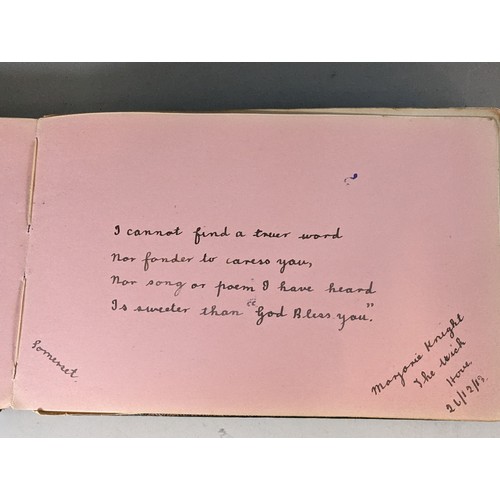 I cannot find a truer word
Nor fonder to caress you,
Nor song or poem I have heard
Is sweeter than "God Bless you."
Somerset.
Marjorie Knight
The Wick
Hove